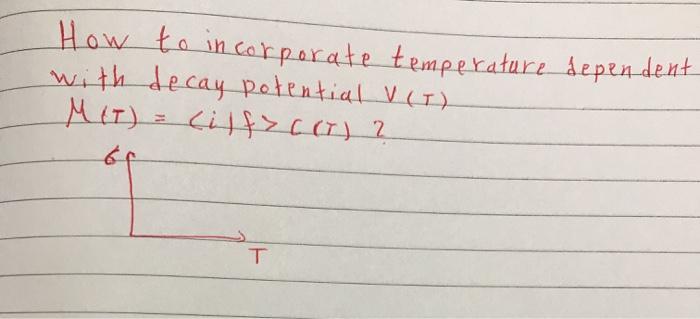 How to incorporate temperature dependent
with decay potential V(T)
M(T) = <i|f> C(T) ?
σ
T